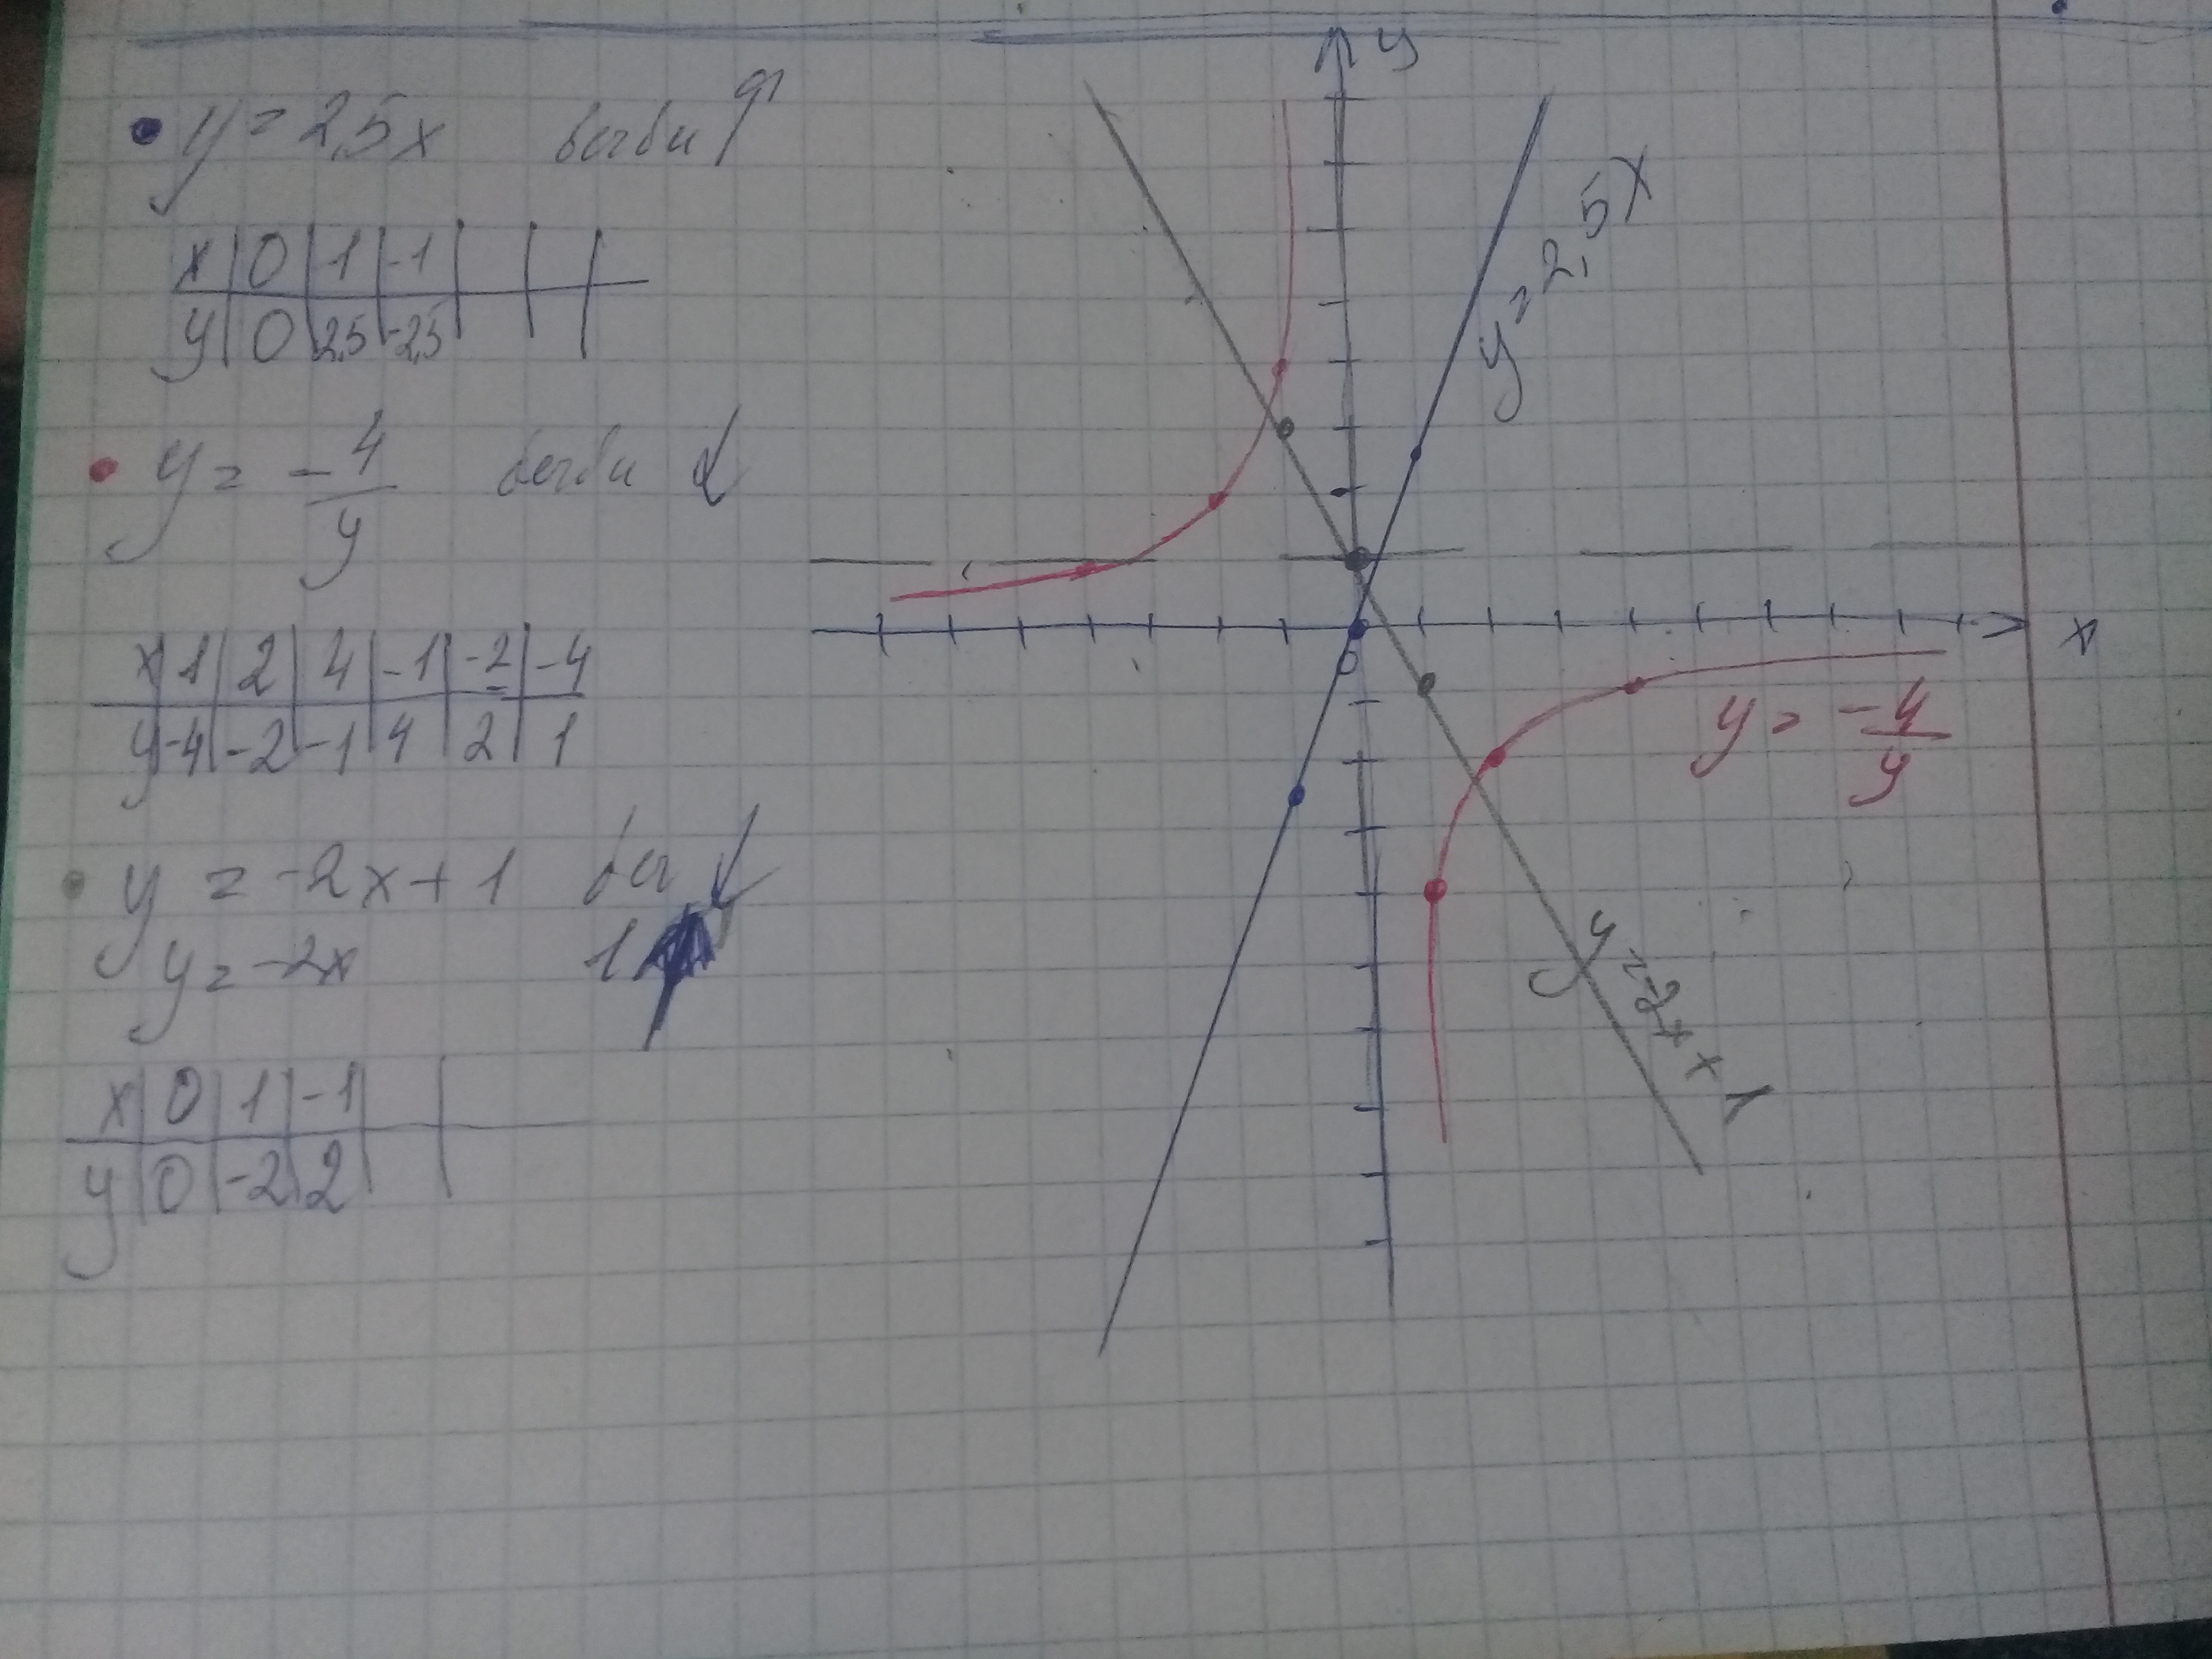 y = 2,5x ветви
x 0 1 -1
y 0 2,5 -2,5
y = -4/y ветви
x 1 2 4 -1 -2 -4
y -4 -2 -1 4 2 1
y = -2x + 1
y = -2x 1
x 0 1 -1
y 0 -2 2
y
y = 2,5x
0
x
y = -4/y
y = -2x + 1